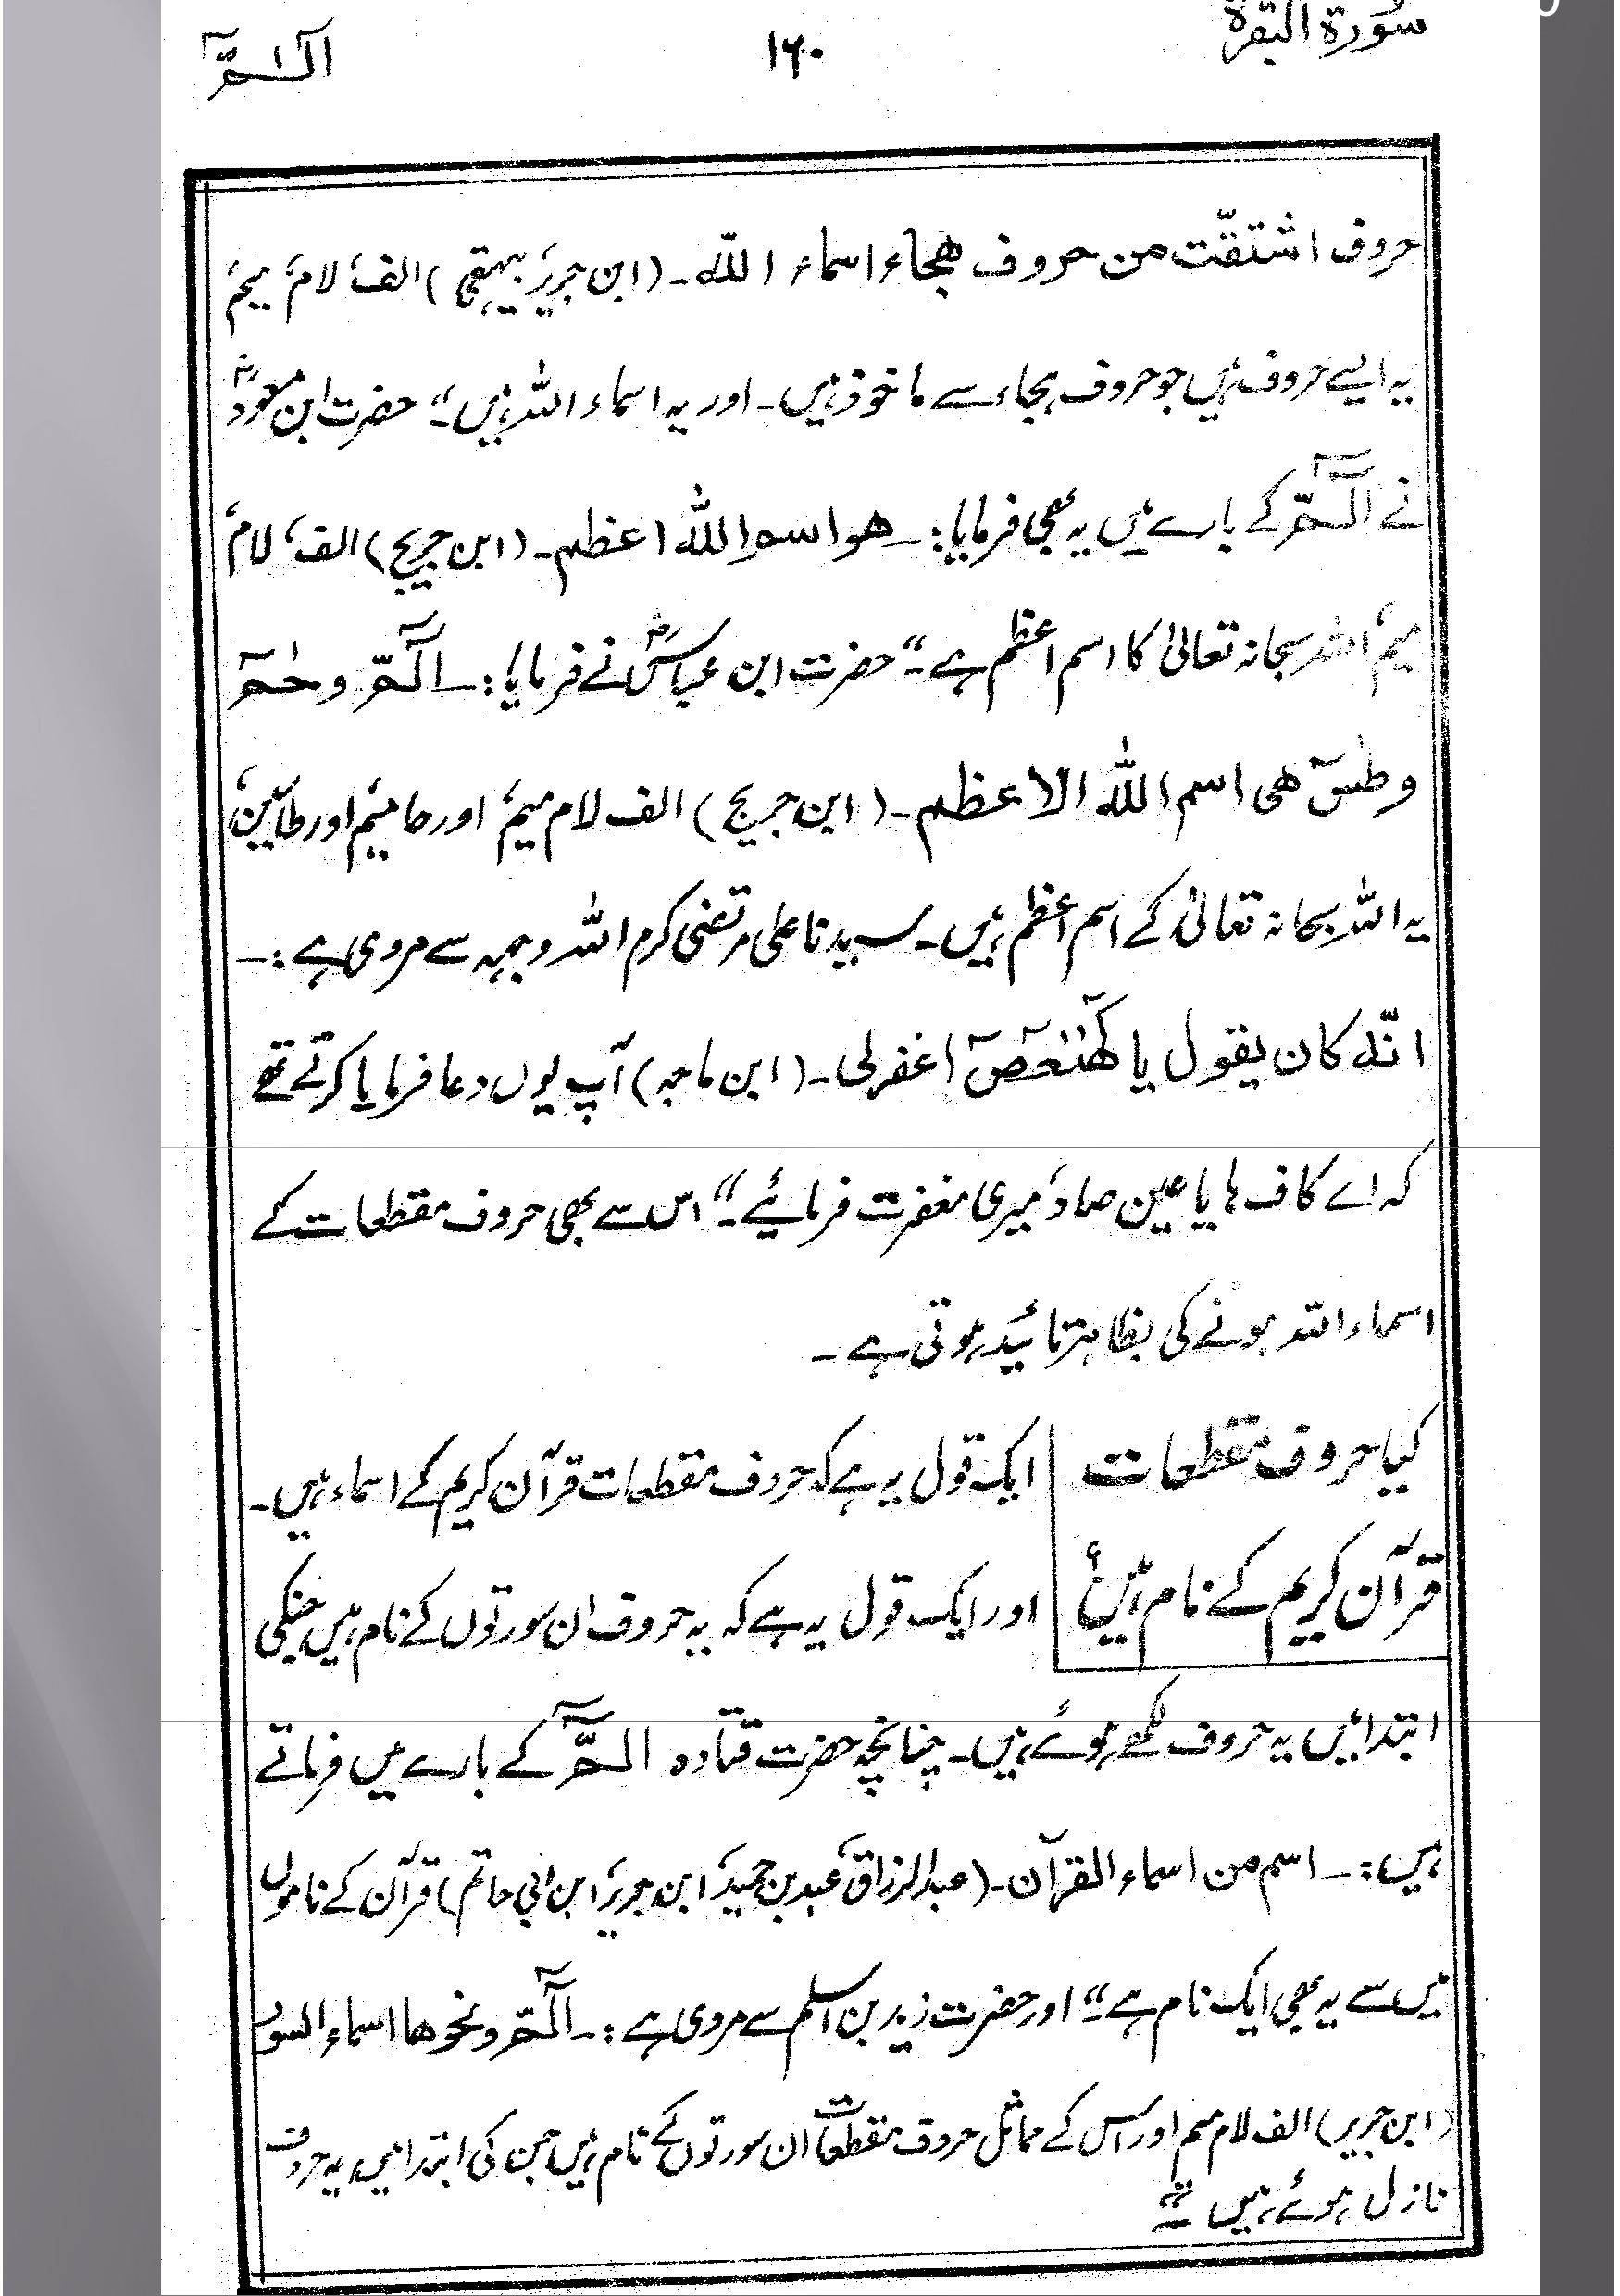 سُورة البقرة
۱۶۰
الٓـمّٓ ۱
حروف اشتقّت من حروف هجاء اسماء اللّٰه۔ (ابن جریر، بیہقی) الف، لام، میم،
یہ ایسے حروف ہیں جو حروف ہجاء سے ماخوذ ہیں۔ اور یہ اسماء اللہ ہیں۔“ حضرت ابن مسعودؓ
نے الٓـمّٓ کے بارے میں یہ بھی فرمایا:۔ هو اسم اللّٰه اعظم۔ (ابن جریج) الف، لام،
میم، اللہ سبحانہ تعالیٰ کا اسم اعظم ہے۔“ حضرت ابن عباسؓ نے فرمایا:۔ الٓمّٓ و حٰمٓ
و طٰسٓ هی اسم اللّٰه الاعظم۔ (ابن جریج) الف لام میم، اور حا میم، اور طا سین،
یہ اللہ سبحانہ تعالیٰ کے اسم اعظم ہیں۔ سیدنا علی مرتضی کرم اللہ وجہہ سے مروی ہے:۔
انّه کان یقول یا کٓهٰیٰعٓصٓ اغفرلی۔ (ابن ماجہ) آپ یوں دعا فرمایا کرتے تھے
کہ اے کاف ہا یا عین صاد، میری مغفرت فرمائیے۔“ اس سے بھی حروف مقطعات کے
اسماء اللہ ہونے کی بظاہر تائید ہوتی ہے۔
کیا حروف مقطعات
قرآن کریم کے نام ہیں؟
ایک قول یہ ہے کہ حروف مقطعات قرآن کریم کے اسماء ہیں۔
اور ایک قول یہ ہے کہ یہ حروف ان سورتوں کے نام ہیں جنکی
ابتدا میں یہ حروف لکھے ہوئے ہیں۔ چنانچہ حضرت قتادہ الٓـمّٓ کے بارے میں فرماتے
ہیں:۔ اسم من اسماء القرآن۔ (عبدالرزاق، عبد بن حمید، ابن جریر، ابن ابی حاتم) قرآن کے ناموں
میں سے یہ بھی ایک نام ہے۔“ اور حضرت زید بن اسلم سے مروی ہے:۔ الٓمّٓ و نحوها اسماء السور
(ابن جریر) الف لام میم اور اس کے مماثل حروف مقطعات ان سورتوں کے نام ہیں جن کی ابتدا میں یہ حروف
نازل ہوئے ہیں۔“